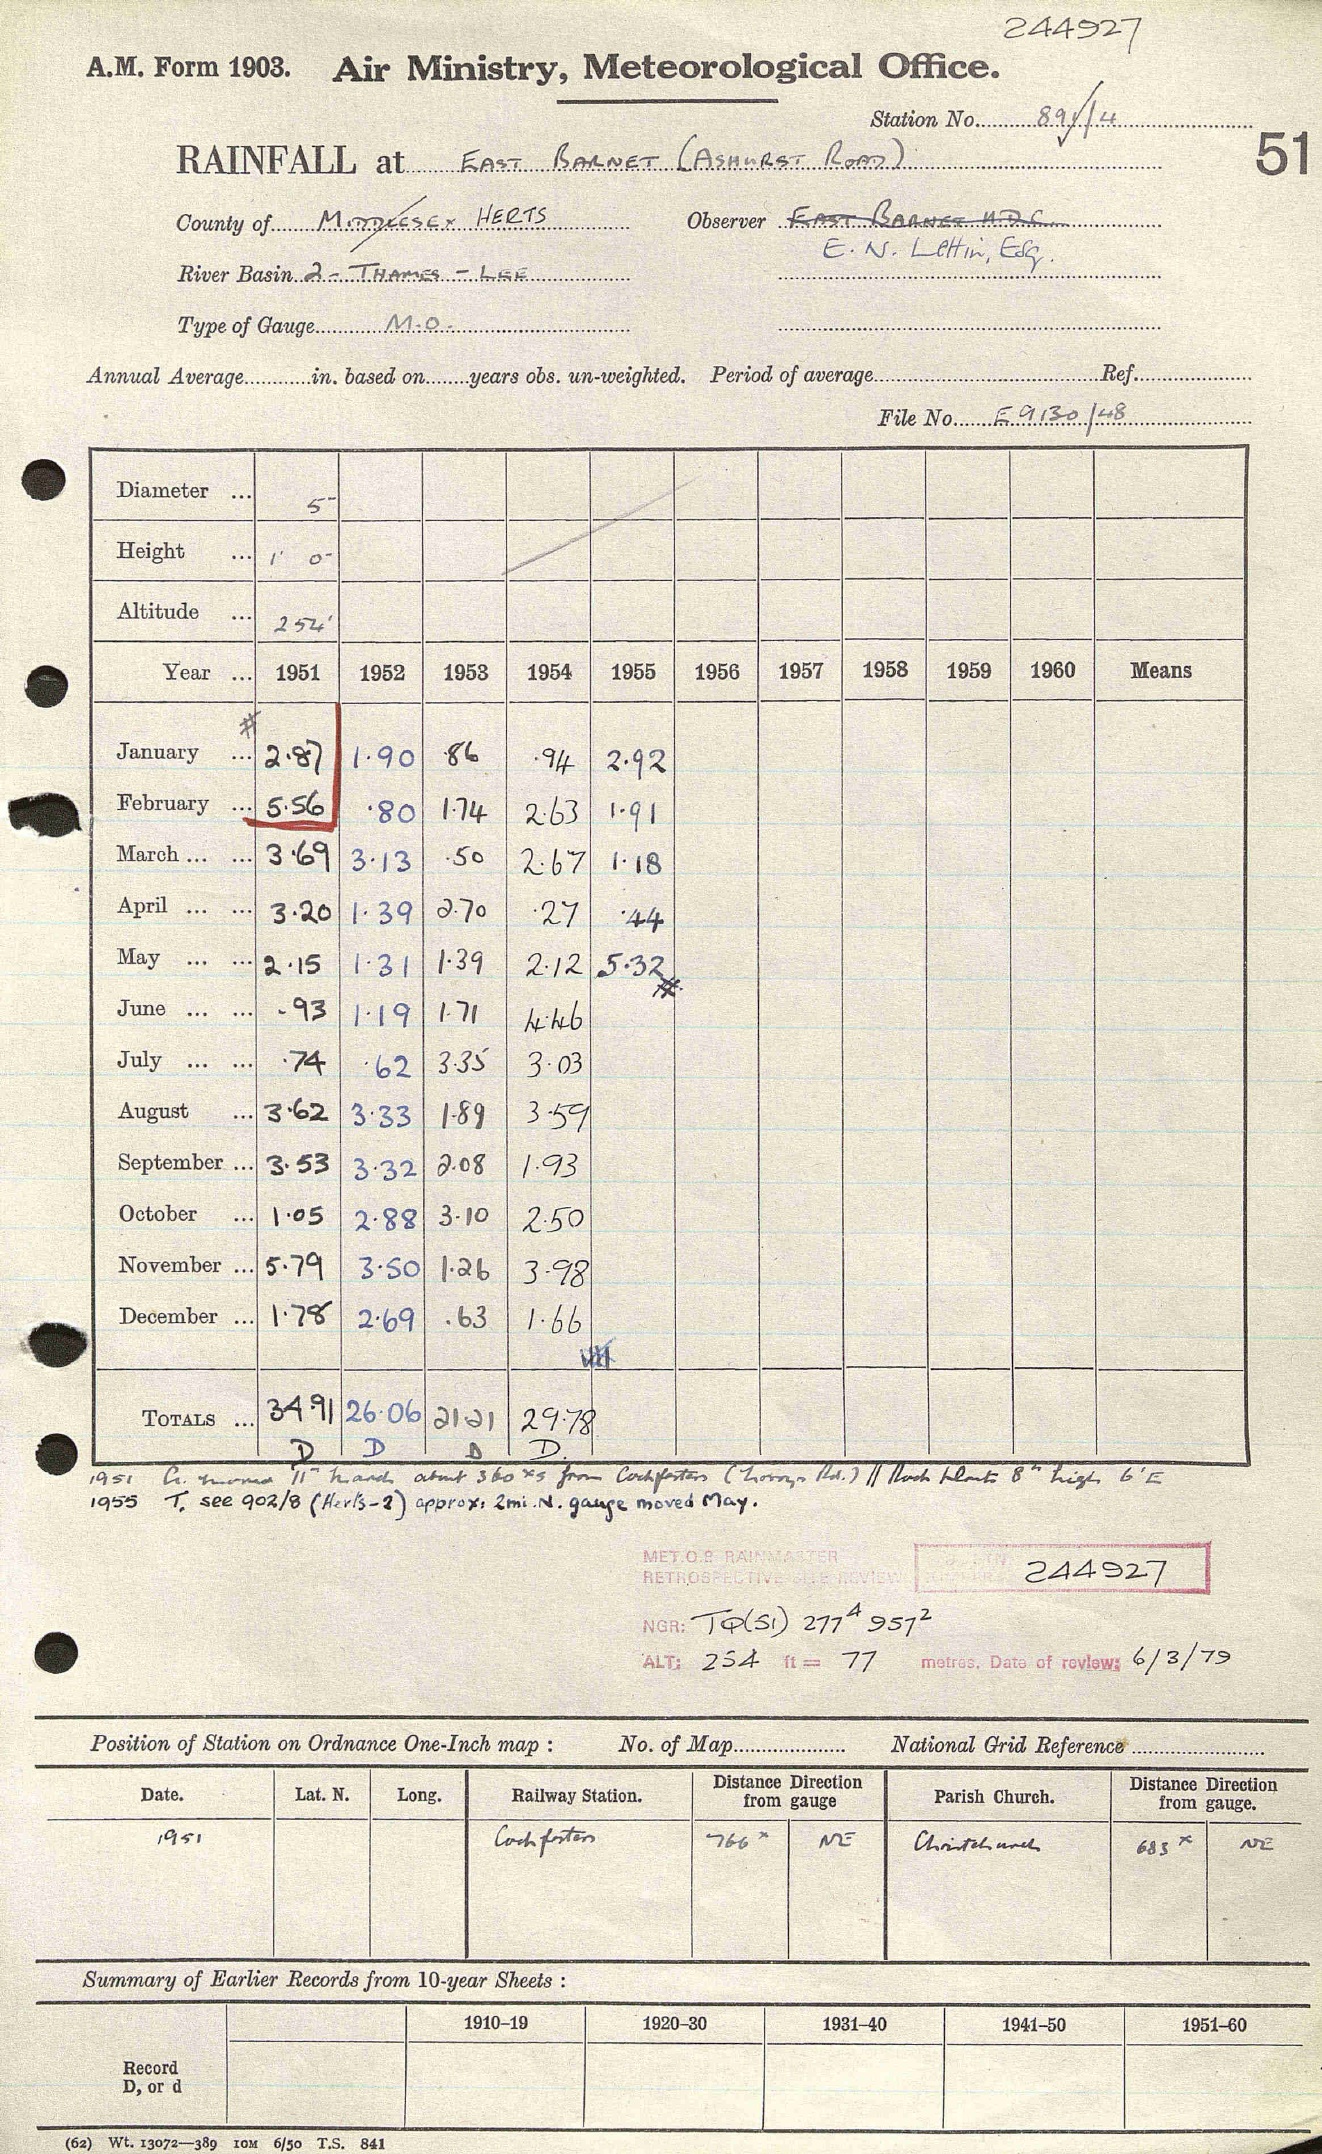 244927
A.M. Form 1903. Air Ministry, Meteorological Office.
Station No. 891/4
51
RAINFALL at EAST BARNET (ASHURST ROAD)
County of MIDDLESEX HERTS Observer EAST BARNET U.D.C.
E. N. Lettin, Esq.
River Basin 2 - THAMES - LEE
Type of Gauge M.O.
Annual Average in. based on years obs. un-weighted. Period of average Ref.
File No. E9130/48
Diameter ... 5"
Height ... 1' 0"
Altitude ... 254'
Year ... 1951 1952 1953 1954 1955 1956 1957 1958 1959 1960 Means
January ... 2.87 1.90 .86 .94 2.92
February ... 5.56 .80 1.74 2.63 1.91
March ... ... 3.69 3.13 .50 2.67 1.18
April ... ... 3.20 1.39 2.70 .27 .44
May ... ... 2.15 1.31 1.39 2.12 5.32
June ... ... .93 1.19 1.71 4.46
July ... ... .74 .62 3.35 3.03
August ... 3.62 3.33 1.89 3.59
September ... 3.53 3.32 2.08 1.93
October ... 1.05 2.88 3.10 2.50
November ... 5.79 3.50 1.26 3.98
December ... 1.78 2.69 .63 1.66
TOTALS ... 34.91 26.06 21.21 29.78
D D D D.
1951 G. moved 11th March about 360 xs from Cockfosters ( Rd.) // 8" high 6'E
1955 T. see 902/8 (Herts-2) approx: 2mi. N. gauge moved May.
MET.O.8 RAINMASTER
RETROSPECTIVE SITE REVIEW 244927
NGR: TQ(51) 277⁴ 957²
ALT: 254 ft = 77 metres. Date of review: 6/3/79
Position of Station on Ordnance One-Inch map : No. of Map National Grid Reference
Date. Lat. N. Long. Railway Station. Distance Direction from gauge Parish Church. Distance Direction from gauge.
1951 Cockfosters 766 x NE Christchurch 683 x NE
Summary of Earlier Records from 10-year Sheets :
1910–19 1920–30 1931–40 1941–50 1951–60
Record
D, or d
(62) Wt. 13072—389 10M 6/50 T.S. 841